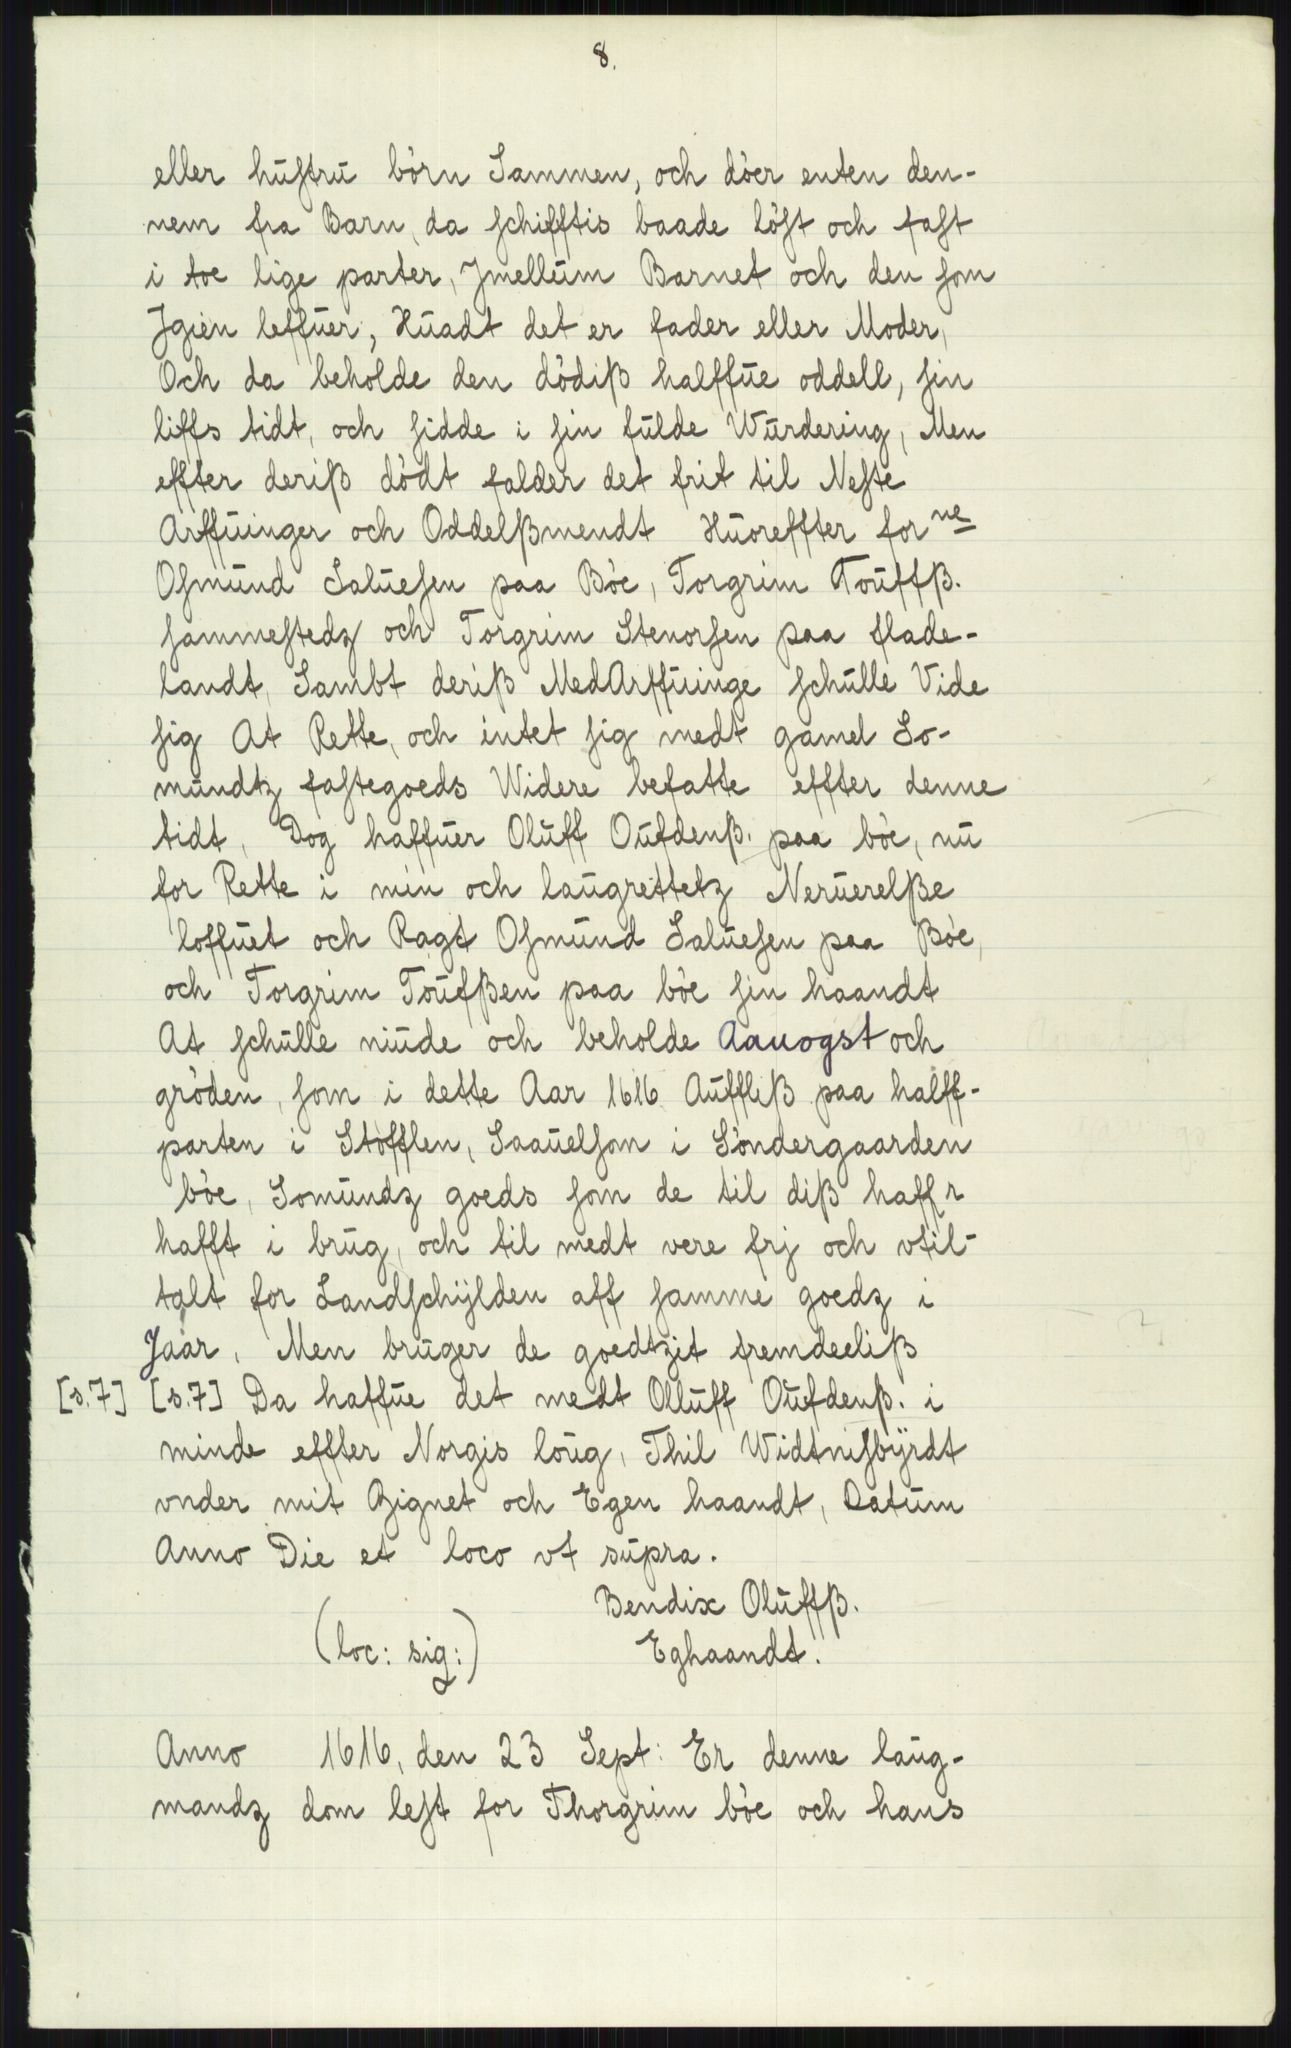 8.
eller hustru börn Sammen, och döer enten den-
nem fra Barn, da schifftis baade löst och fast
i toe lige parter, Jmellum Barnet och den som
Jgien leffuer, Huadt det er fader eller Moder,
Och da beholde den dödiß halffue oddell, sin
liffs tidt, och sidde i sin fulde Wurdering, Men
effter deriß dödt falder det frit til Neste
Arffuinger och Oddelßmendt Huoreffter for ne
Osmund Saluesen paa Böe, Torgrim Touffß.
sammestedz och Torgrim Stenorsen paa flade-
landt, Sambt deriß MedArffuinge schulle Vide
sig At Rette, och intet sig medt gamel So-
mundtz fastegoeds Widere befatte effter denne
tidt, Dog haffuer Oluff Oufdenß. paa böe, nu
for Rette i min och laugrettetz Neruerelße
loffuet och Ragt Osmund Saluesen paa Böe,
och Torgrim Toufßen paa böe sin haandt
At schulle niude och beholde Aauogst och
gröden, som i dette Aar 1616 Auffliß paa halff-
parten i Stöfflen, Saauelsom i Söndergaarden
böe, Somundz goeds som de til diß haffr
hafft i brug, och til medt vere frj och vtil-
talt for Landschÿlden aff samme goedz i
Jaar, Men bruger de goedtzit fremdeeliß
[s.7] [s.7] Da haffue det medt Olluff Oufdenß. i
minde effter Norgis loug, Thil Widtnisbÿrdt
vnder mit Zignet och Egen haandt, Datum
Anno Die et loco vt supra.
Bendix Oluffß.
(loc: sig:) Eghaandt.
Anno 1616, den 23 Sept: Er denne laug-
mandz dom lest for Thorgrim böe och hans